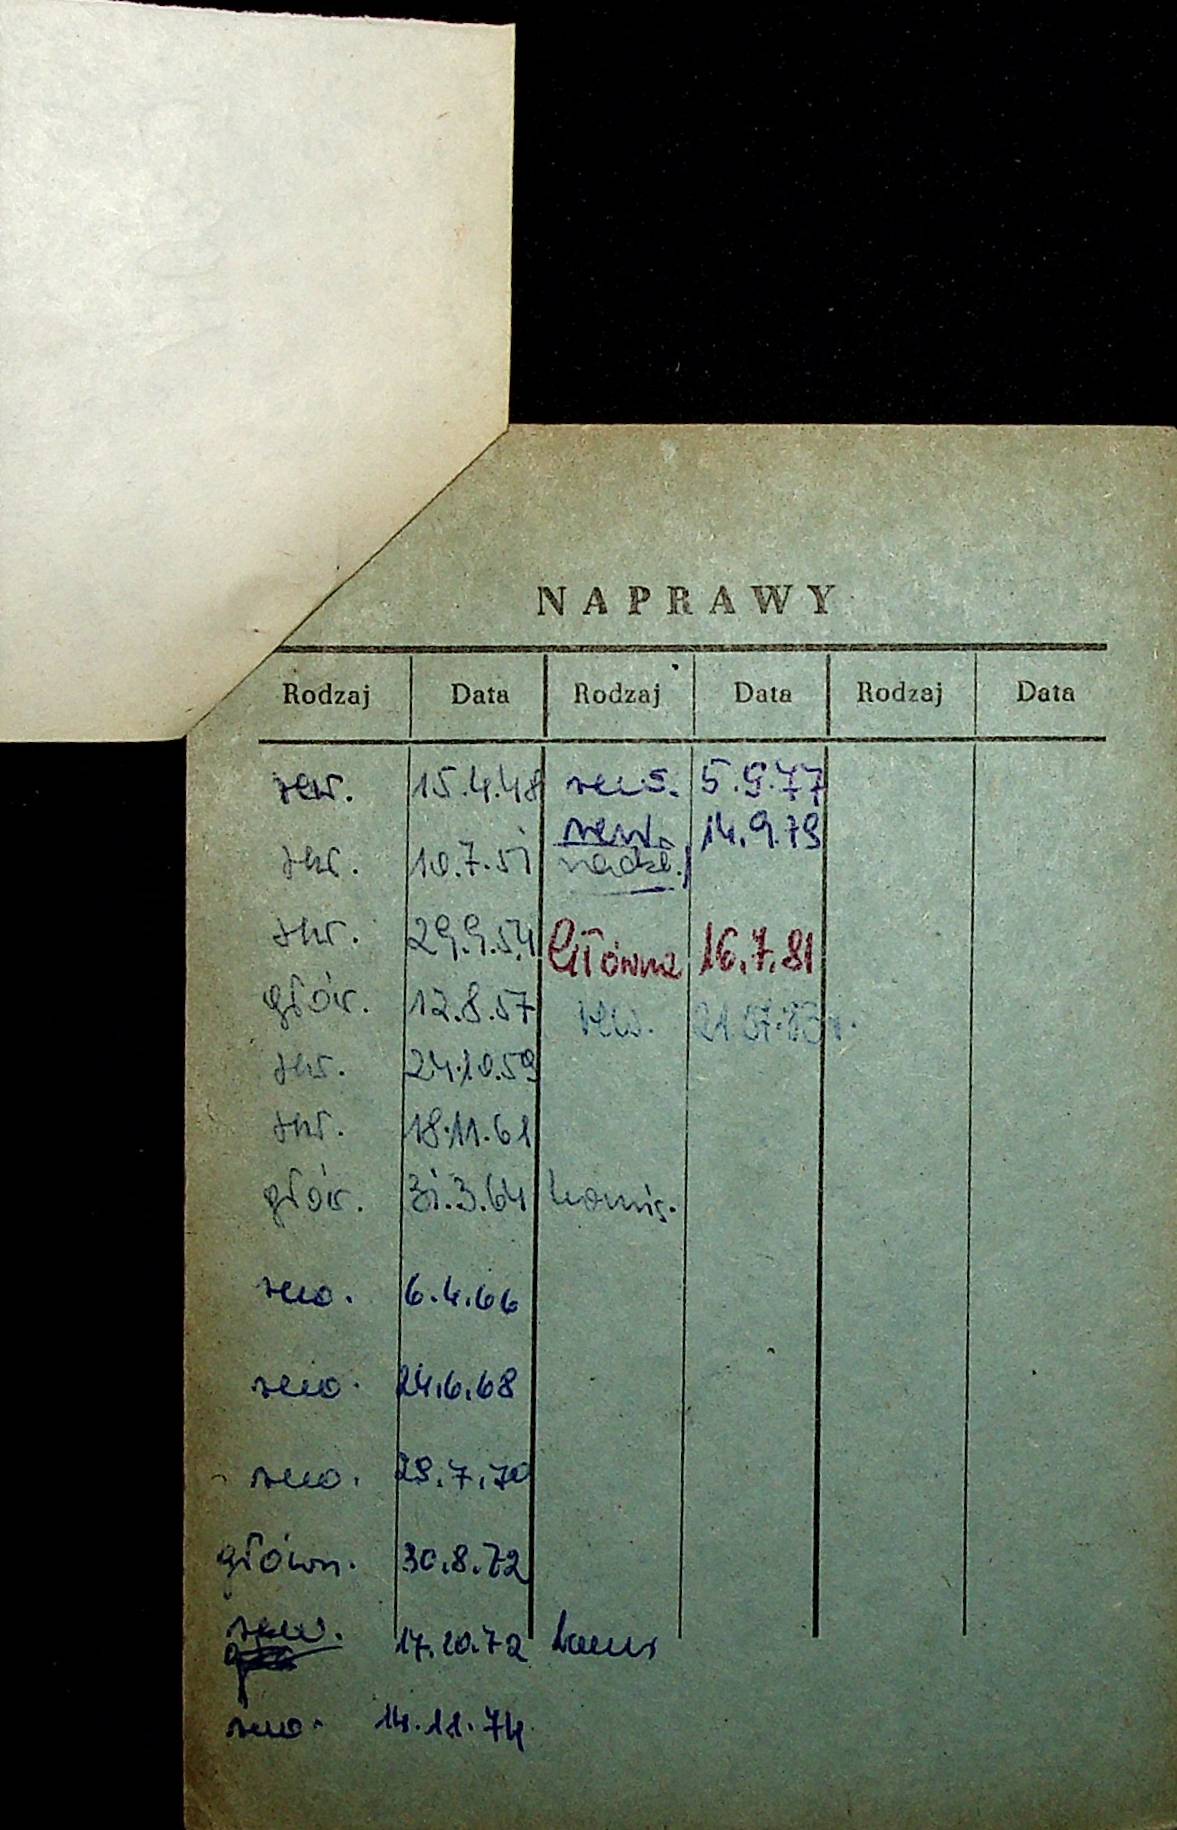 NAPRAWY
Rodzaj Data Rodzaj Data Rodzaj Data
rew. 15.4.48 rew. 5.9.77
rew. 14.9.79
rew. 10.7.51 nadzl.
rew. 29.9.54 Główna 16.7.81
głów. 12.8.57 rew. 21.07.83r.
rew. 24.10.59
rew. 18.11.61
głów. 31.3.64 komis.
rew. 6.4.66
rew. 24.6.68
rew. 29.7.70
główn. 30.8.72
rew. 17.10.72
rew. 14.11.74